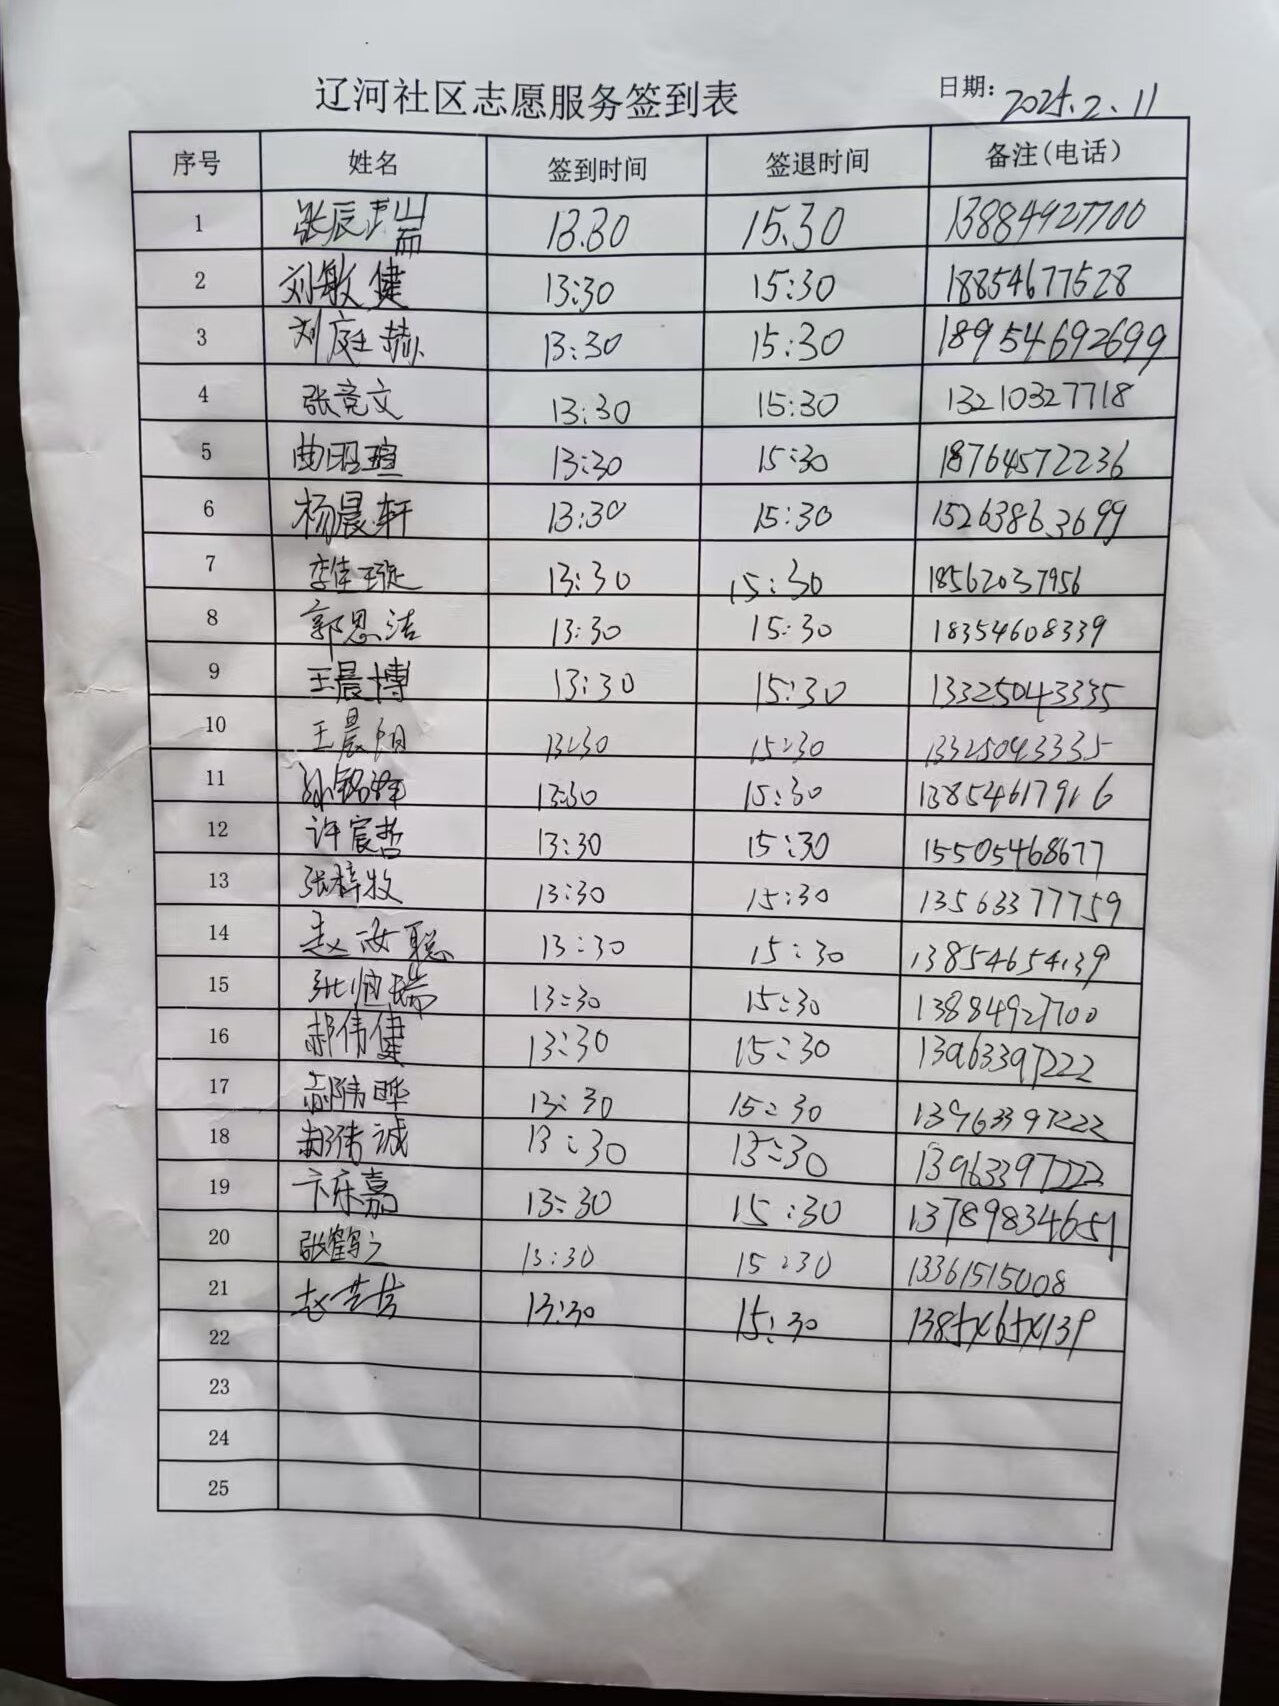 辽河社区志愿服务签到表
日期: 2025.2.11
序号 姓名 签到时间 签退时间 备注(电话)
1 张辰瑞 13.30 15.30 13884927700
2 刘敏健 13:30 15:30 18854677528
3 刘庭赫 13:30 15:30 18954692699
4 张竞文 13:30 15:30 13210327718
5 曲昭瑄 13:30 15:30 18764572236
6 杨晨轩 13:30 15:30 15263863699
7 李佳璇 13:30 15:30 18562037956
8 郭思洁 13:30 15:30 18354608339
9 王晨博 13:30 15:30 13325043335
10 王晨 13:30 15:30 13325043335
11 孙铭泽 13:30 15:30 13854617916
12 许宸哲 13:30 15:30 15505468677
13 张梓牧 13:30 15:30 13563377759
14 赵汝聪 13:30 15:30 13854654139
15 张恒瑞 13:30 15:30 13884927700
16 郝伟健 13:30 15:30 13963397222
17 郝伟晔 13:30 15:30 13963397222
18 郝伟诚 13:30 15:30 13963397222
19 卞乐嘉 13:30 15:30 13789834651
20 张鹤之 13:30 15:30 13361515008
21 赵 13:30 15:30
22
23
24
25